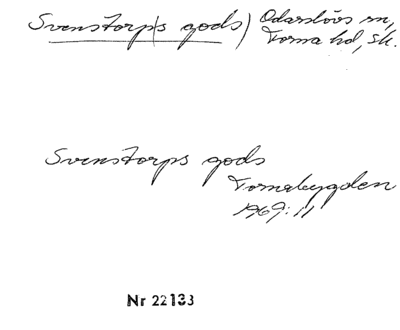 Svenstorps gods) Odarslövs sn,
Torna hd, Sk.
Svenstorps gods
Tornabygden
1969:11
Nr 22133